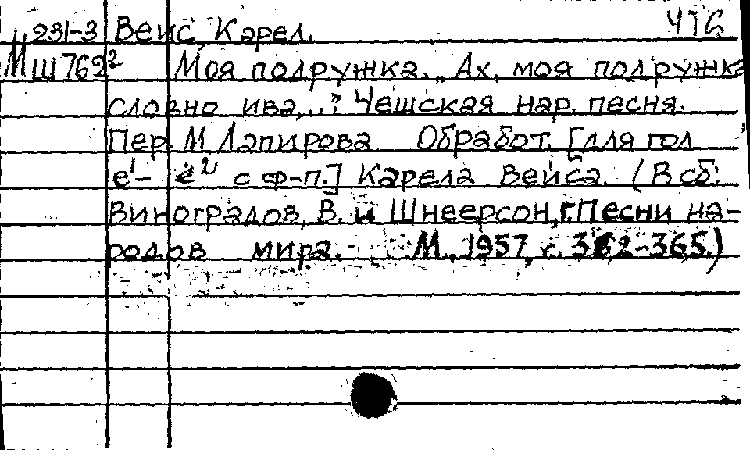 231-3 Вейс Карел. ЧТБ
Мш 769² Моя подружка. „Ах, моя подружка
словно ива...“ Чешская нар. песня.
Пер. М. Лапирова Обработ. [для гол.
e¹ – e² с ф-п.] Карела Вейса. (В сб:
Виноградов, В. и Шнеерсон, Г. Песни на-
родов мира. М., 1957, с. 362-365.)